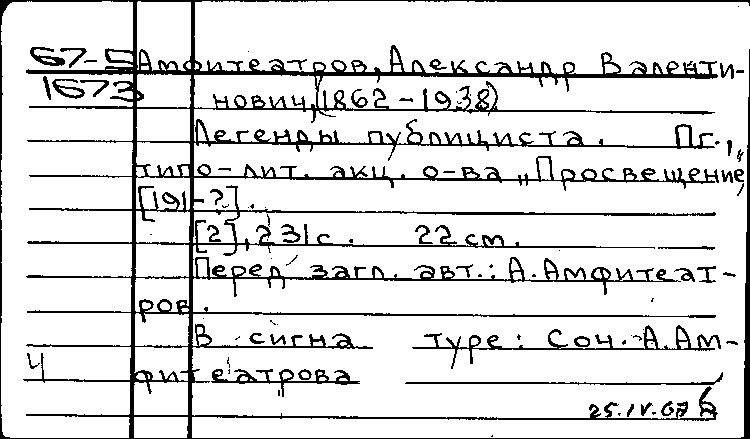 67-5 Амфитеатров, Александр Валенти-
1673 нович, (1862-1938)
Легенды публициста. Пг.,
типо-лит. акц. о-ва „Просвещение”,
[191-?].
[2], 231 с. 22 см.
Перед загл. авт.: А. Амфитеат-
ров.
В сигна туре: Соч. А. Ам-
Ч фитеатрова
25.IV.67